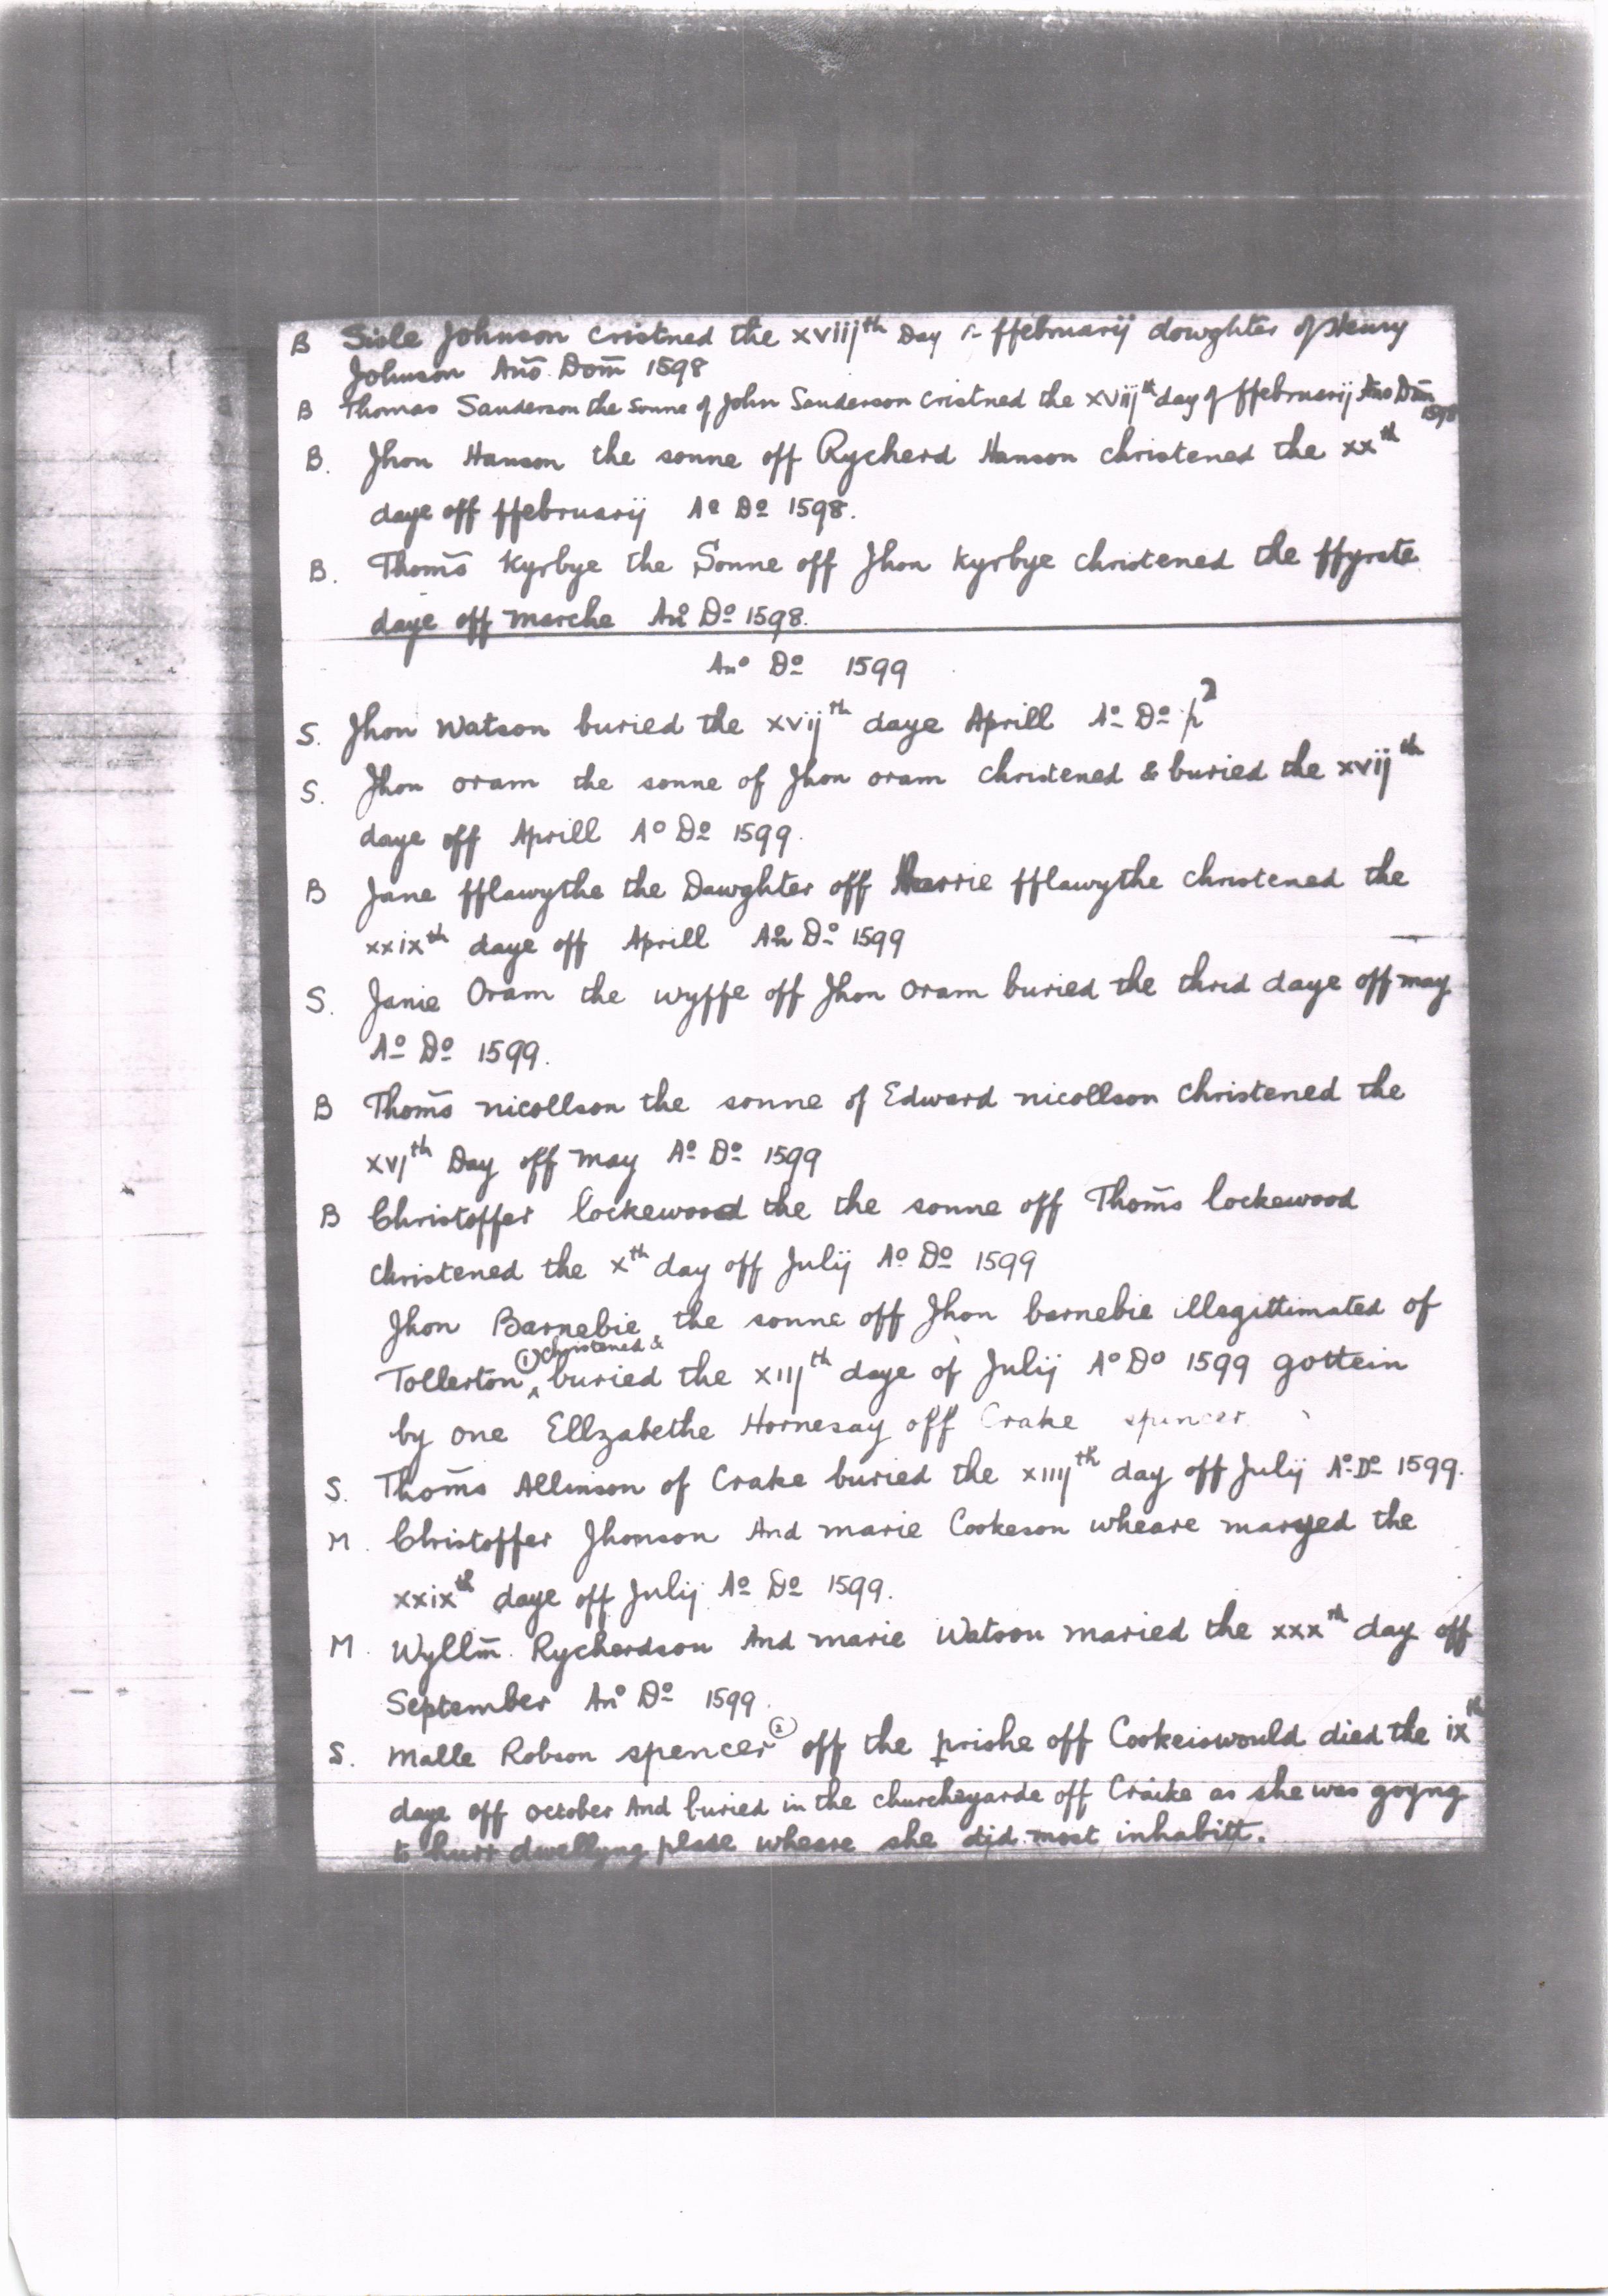 B Sisle Johnson cristned the xviijth Day ffebruarij dowghter of Henry
Johnson Ano Dom 1598
B Thomas Sanderson the Sonne of John Sanderson cristned the xviijth day of ffebruarij Ano Dm 1598
B. Jhon Hanson the sonne off Rycherd Hanson christened the xxth
daye off ffebruarij Ao Do 1598.
B. Thoms Kyrbye the Sonne off Jhon Kyrbye christened the ffyrste
daye off marche Ano Do 1598.
Ano Do 1599
S. Jhon Watson buried the xvijth daye Aprill Ao Do
S. Jhon oram the sonne of Jhon oram christened & buried the xvijth
daye off Aprill Ao Do 1599.
B Jane fflawythe the Dawghter off Harrie fflawythe christened the
xxixth daye off Aprill Ano Do 1599
S. Janie Oram the wyffe off Jhon oram buried the thrid daye off may
Ao Do 1599.
B Thoms nicollson the sonne of Edward nicollson christened the
xvjth Day off may Ao Do 1599
B Christoffer lockewood the the sonne off Thoms lockewood
christened the xth day off Julij Ao Do 1599
Jhon Barnebie the sonne off Jhon barnebie illegittimated of
Tollerton ① christened & buried the xiijth daye of Julij Ao Do 1599 gottein
by one Ellzabethe Hornesay off Crake spencer
S. Thoms Allinson of Crake buried the xiiijth day off Julij Ao Do 1599.
M. Christoffer Jhonson And marie Cookeson wheare maryed the
xxixth daye off Julij Ao Do 1599.
M. Wyllm Rycherdson And marie Watson maried the xxxth day off
September Ano Do 1599.
S. Malle Robson spencer ② off the prishe off Cookeiswould died the ixth
daye off october And buried in the churcheyarde off Craike as she was goyng
to hurr dwellyng plase wheare she did most inhabitt.